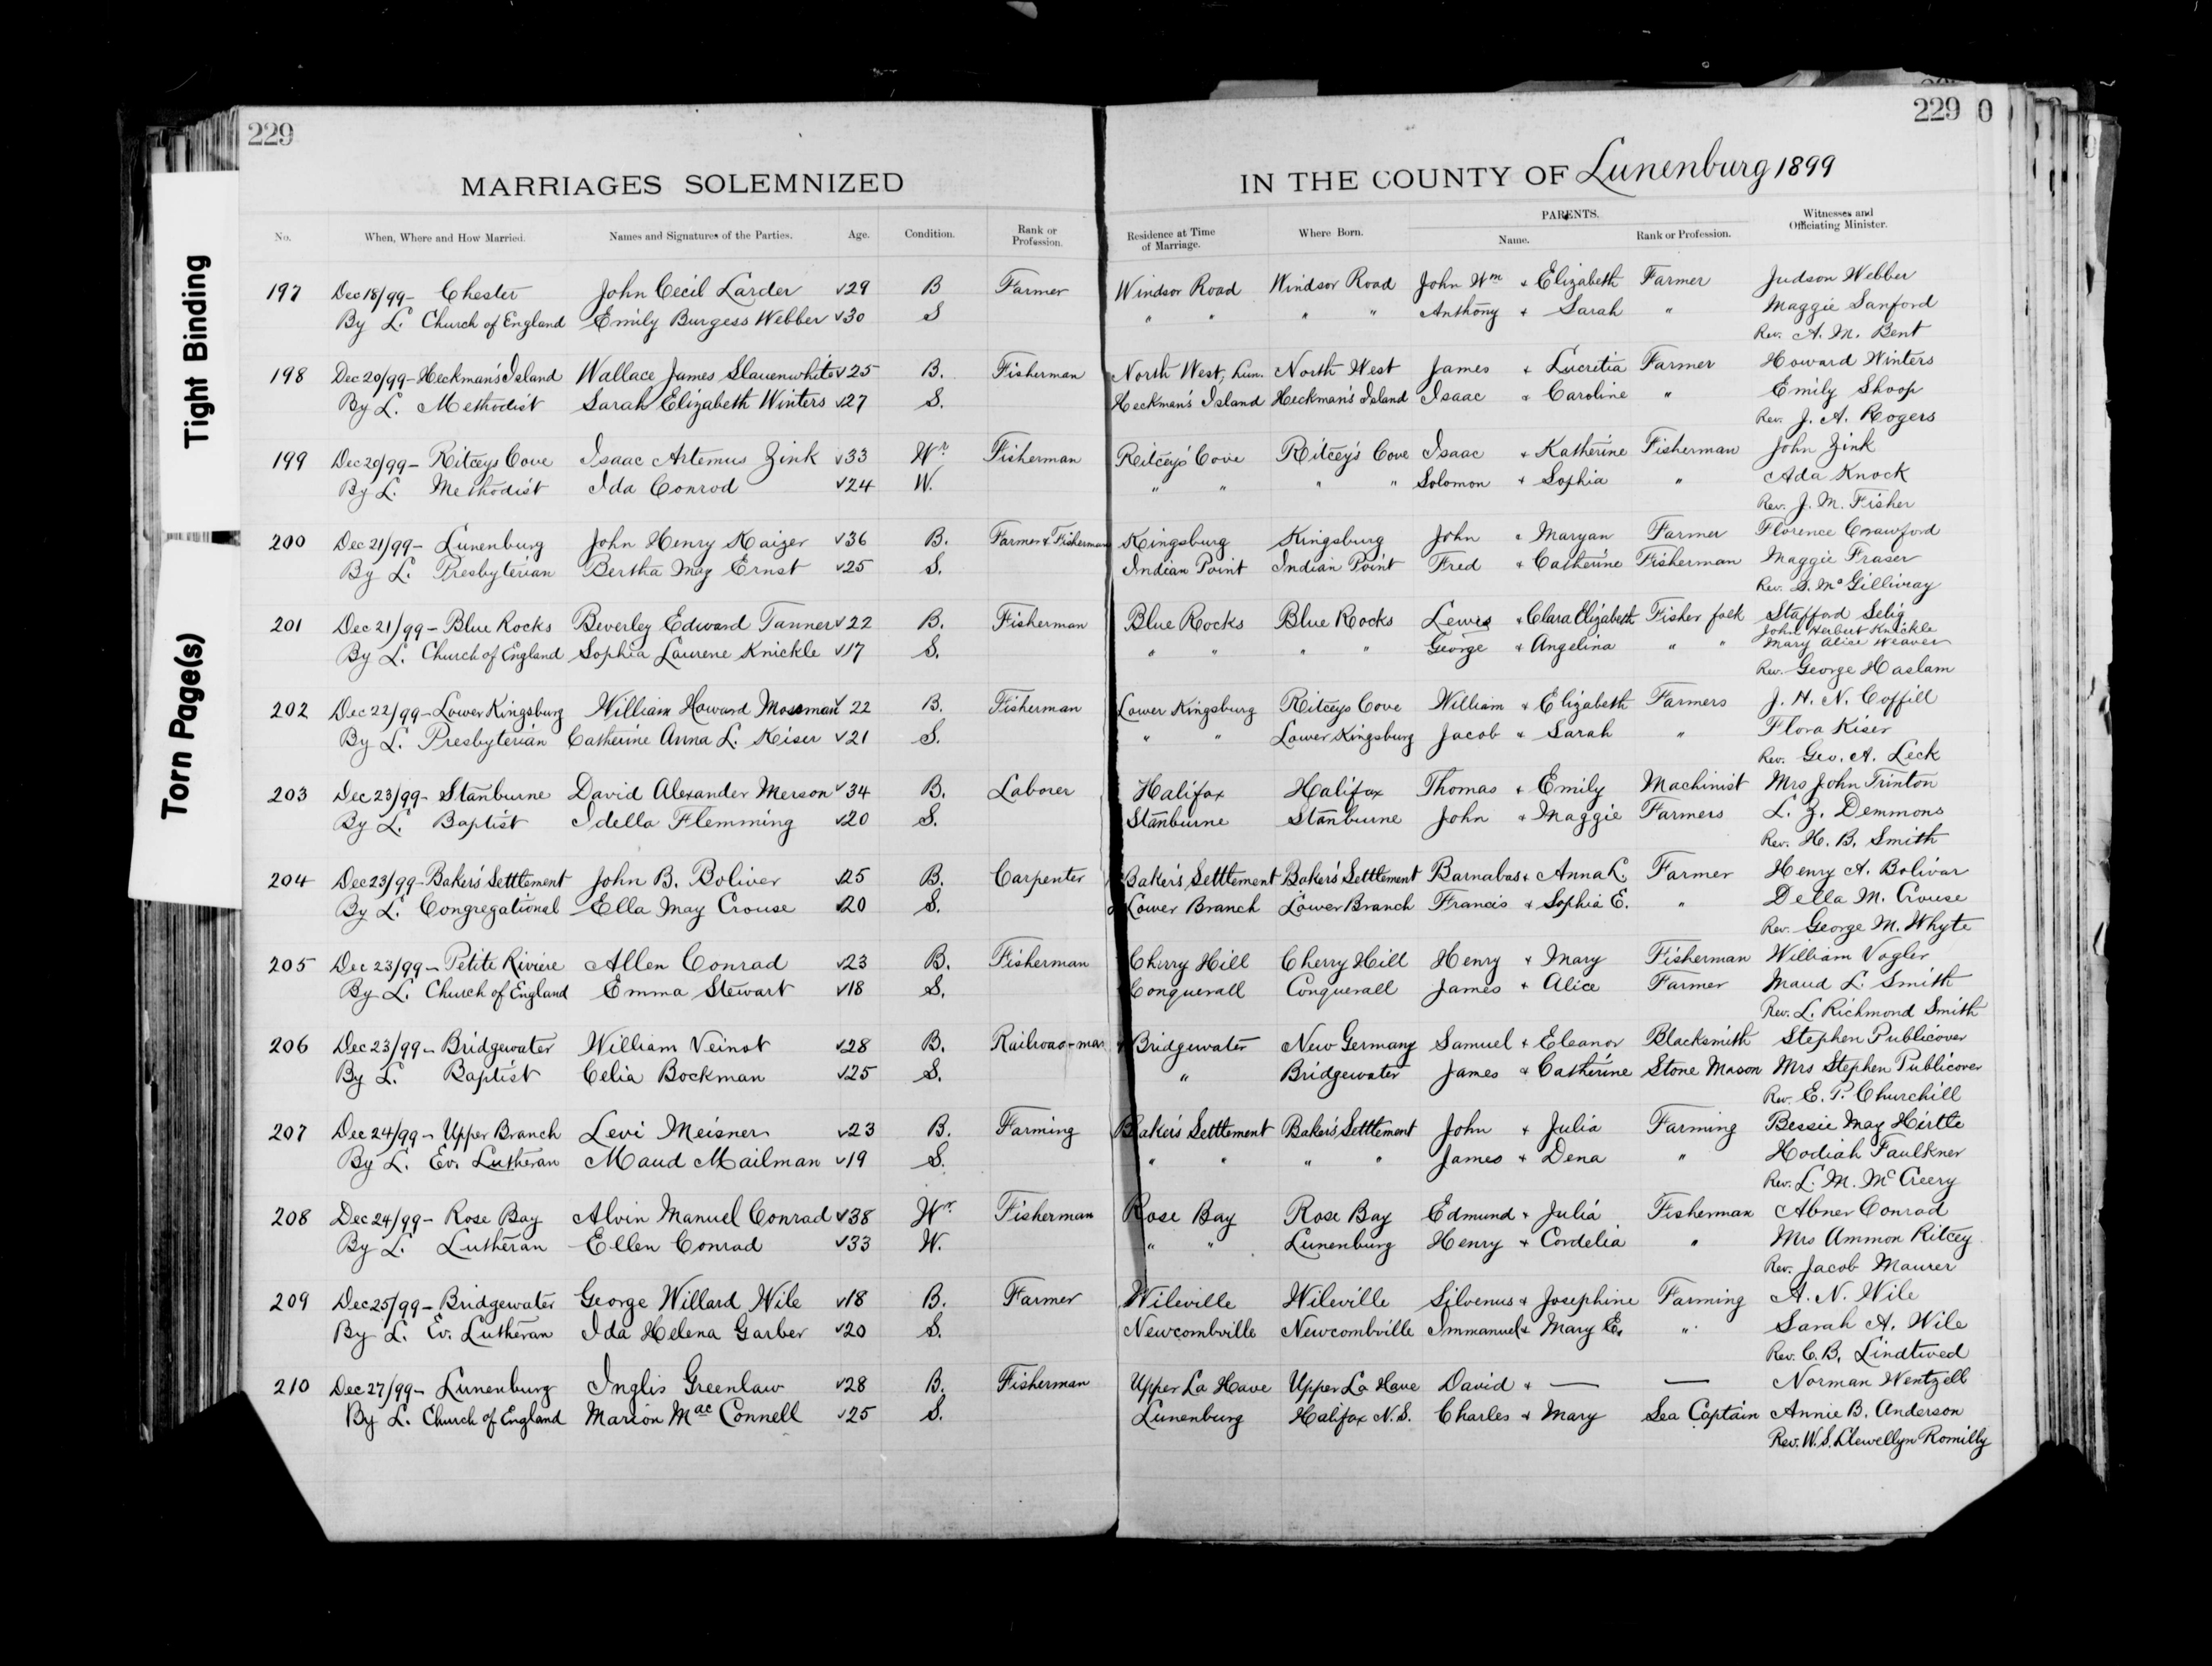 229
MARRIAGES SOLEMNIZED
229 0
IN THE COUNTY OF Lunenburg 1899
Tight Binding
Torn Page(s)
No. When, Where and How Married. Names and Signatures of the Parties. Age. Condition. Rank or Profession. Residence at Time of Marriage. Where Born. PARENTS. Name. Rank or Profession. Witnesses and Officiating Minister.
197 Dec 18/99 - Chester John Cecil Larder √29 B Farmer Windsor Road Windsor Road John Wm + Elizabeth Farmer Judson Webber
By L. Church of England Emily Burgess Webber √30 S " " " " Anthony + Sarah " Maggie Sanford
Rev. A. M. Bent
198 Dec 20/99 - Heckman's Island Wallace James Slauenwhite √25 B. Fisherman North West, Lun. North West James + Lucretia Farmer Howard Winters
By L. Methodist Sarah Elizabeth Winters √27 S. Heckman's Island Heckman's Island Isaac + Caroline " Emily Shoop
Rev. J. A. Rogers
199 Dec 20/99 - Ritceys Cove Isaac Artemus Zink √33 Wr. Fisherman Ritceys' Cove Ritcey's Cove Isaac + Katherine Fisherman John Zink
By L. Methodist Ida Conrod √24 W. " " " " Solomon + Sophia " Ada Knock
Rev. J. M. Fisher
200 Dec 21/99 - Lunenburg John Henry Kaizer √36 B. Farmer & Fisherman Kingsburg Kingsburg John + Maryan Farmer Florence Crawford
By L. Presbyterian Bertha May Ernst √25 S. Indian Point Indian Point Fred + Catherine Fisherman Maggie Fraser
Rev. D. McGillivray
201 Dec 21/99 - Blue Rocks Beverley Edward Tanner √22 B. Fisherman Blue Rocks Blue Rocks Lewis + Clara Elizabeth Fisher folk Stafford Selig
John Herbert Knickle
By L. Church of England Sophia Laurene Knickle √17 S. " " " " George + Angelina " " Mary Alice Weaver
Rev. George Haslam
202 Dec 22/99 - Lower Kingsburg William Howard Mossman √22 B. Fisherman Lower Kingsburg Ritceys Cove William + Elizabeth Farmers J. H. N. Coffill
By L. Presbyterian Catherine Anna L. Keiser √21 S. " " Lower Kingsburg Jacob + Sarah " Flora Kiser
Rev. Geo. A. Leck
203 Dec 23/99 - Stanburne David Alexander Merson √34 B. Laborer Halifax Halifax Thomas + Emily Machinist Mrs John Trinton
By L. Baptist Idella Flemming √20 S. Stanburne Stanburne John + Maggie Farmers L. Z. Demmons
Rev. H. B. Smith
204 Dec 23/99 - Baker's Setttement John B. Boliver √25 B. Carpenter Baker's Setttement Baker's Setttement Barnabas + Anna L. Farmer Henry A. Bolivar
By L. Congregational Ella May Crouse √20 S. Lower Branch Lower Branch Francis + Sophia E. " Della M. Crouse
Rev. George M. Whyte
205 Dec 23/99 - Petite Riviere Allen Conrad √23 B. Fisherman Cherry Hill Cherry Hill Henry + Mary Fisherman William Vogler
By L. Church of England Emma Stewart √18 S. Conquerall Conquerall James + Alice Farmer Maud L. Smith
Rev. L. Richmond Smith
206 Dec 23/99 - Bridgewater William Veinot √28 B. Railroad-man Bridgewater New Germany Samuel + Eleanor Blacksmith Stephen Publicover
By L. Baptist Celia Bockman √25 S. " Bridgewater James + Catherine Stone Mason Mrs Stephen Publicover
Rev. E. P. Churchill
207 Dec 24/99 - Upper Branch Levi Meisner √23 B. Farming Baker's Setttement Baker's Setttement John + Julia Farming Bessie May Hirtle
By L. Ev. Lutheran Maud Mailman √19 S. " " " " James + Dena " Hodiah Faulkner
Rev. L. M. McCreery
208 Dec 24/99 - Rose Bay Alvin Manuel Conrad √38 Wr. Fisherman Rose Bay Rose Bay Edmund + Julia Fisherman Abner Conrad
By L. Lutheran Ellen Conrad √33 W. " " Lunenburg Henry + Cordelia " Mrs Ammon Ritcey
Rev. Jacob Maurer
209 Dec 25/99 - Bridgewater George Willard Wile √18 B. Farmer Wileville Wileville Silvenus + Josephine Farming A. N. Wile
By L. Ev. Lutheran Ida Helena Garber √20 S. Newcombville Newcombville Immanuel + Mary E. " Sarah A. Wile
Rev. C. B. Lindtwed
210 Dec 27/99 - Lunenburg Inglis Greenlaw √28 B. Fisherman Upper La Have Upper La Have David + — — Norman Wentzell
By L. Church of England Marion MacConnell √25 S. Lunenburg Halifax N.S. Charles + Mary Sea Captain Annie B. Anderson
Rev. W. S. Llewellyn Romilly